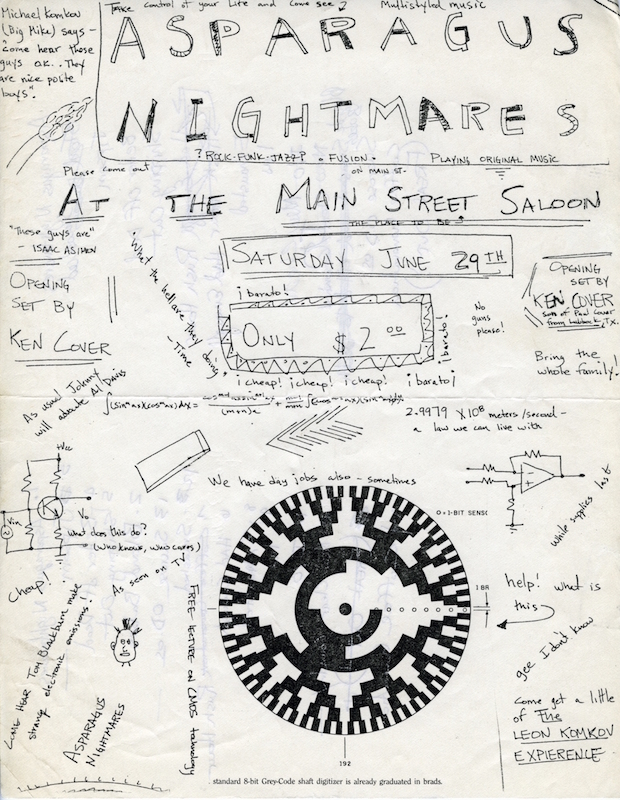 Michael Komkov
(Big Mike) says -
"Come hear these
guys o.k... They
are nice poste
boys".
Take control of your Life and Come see ↓
Multistyled music
ASPARAGUS
NIGHTMARES
? ROCK-FUNK-JAZZ? • FUSION •
PLAYING ORIGINAL MUSIC
Please come out
ON MAIN ST.
AT THE MAIN STREET SALOON
THE PLACE TO BE
"These guys are"
- ISAAC ASIMOV
OPENING
SET BY
KEN COVER
"What the hell are they doing"
- Time
SATURDAY JUNE 29TH
¡barato!
ONLY $2.00
¡barato!
¡barato!
¡cheap! ¡cheap! ¡cheap! ¡barato!
No
guns
please!
OPENING
SET BY
KEN COVER
son of Paul Cover
from Lubbock, TX.
Bring the
whole family!
As usual Johnny
will abuate Al Davis
2.9979 X10⁸ meters/second -
a law we can live with
We have day jobs also - sometimes
+Vcc
Vin
Vo
What does this do?
(who knows, who cares)
Cheap!
As seen on TV
while supplies last
O = 1-BIT SENS
1 BR
help! what is
this
gee I don't know
COME HEAR TOM BLACKBURN make
strange electronic emissions
ASPARAGUS
NIGHTMARES
FREE LECTURE ON CMOS technology
Come get a little
of The
LEON KOMKOV
EXPIERENCE
192
standard 8-bit Grey-Code shaft digitizer is already graduated in brads.